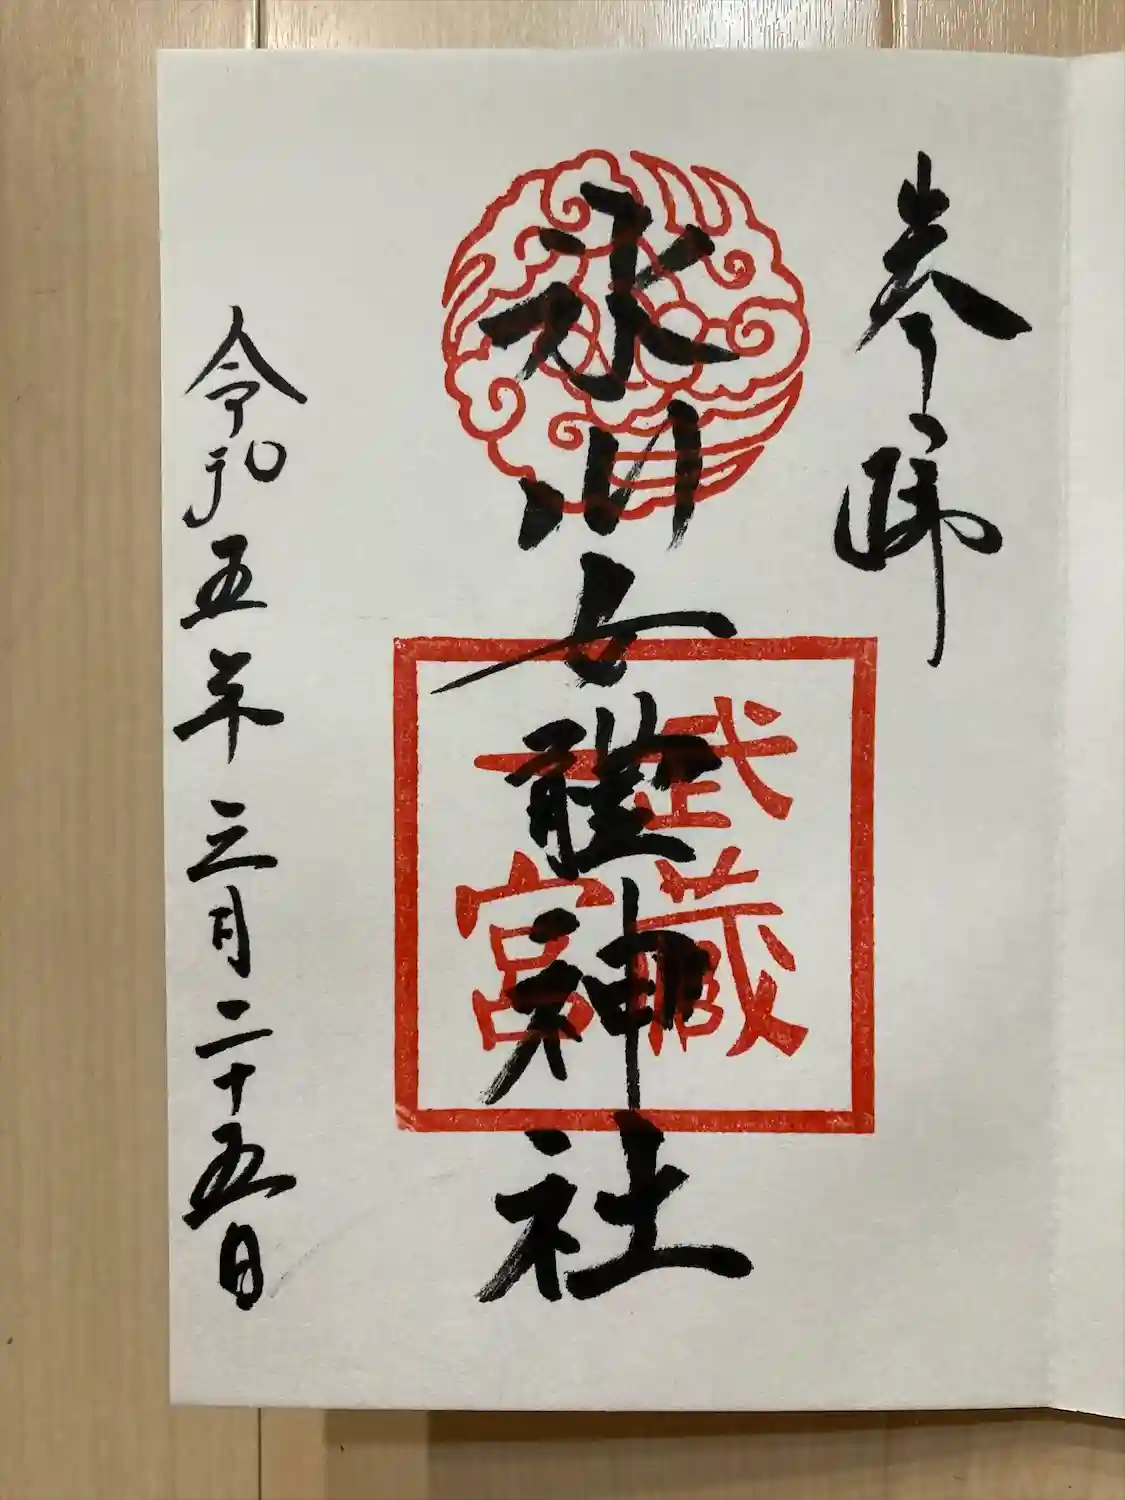 奉拝
氷川女體神社
武蔵
一宮
令和五年三月二十五日